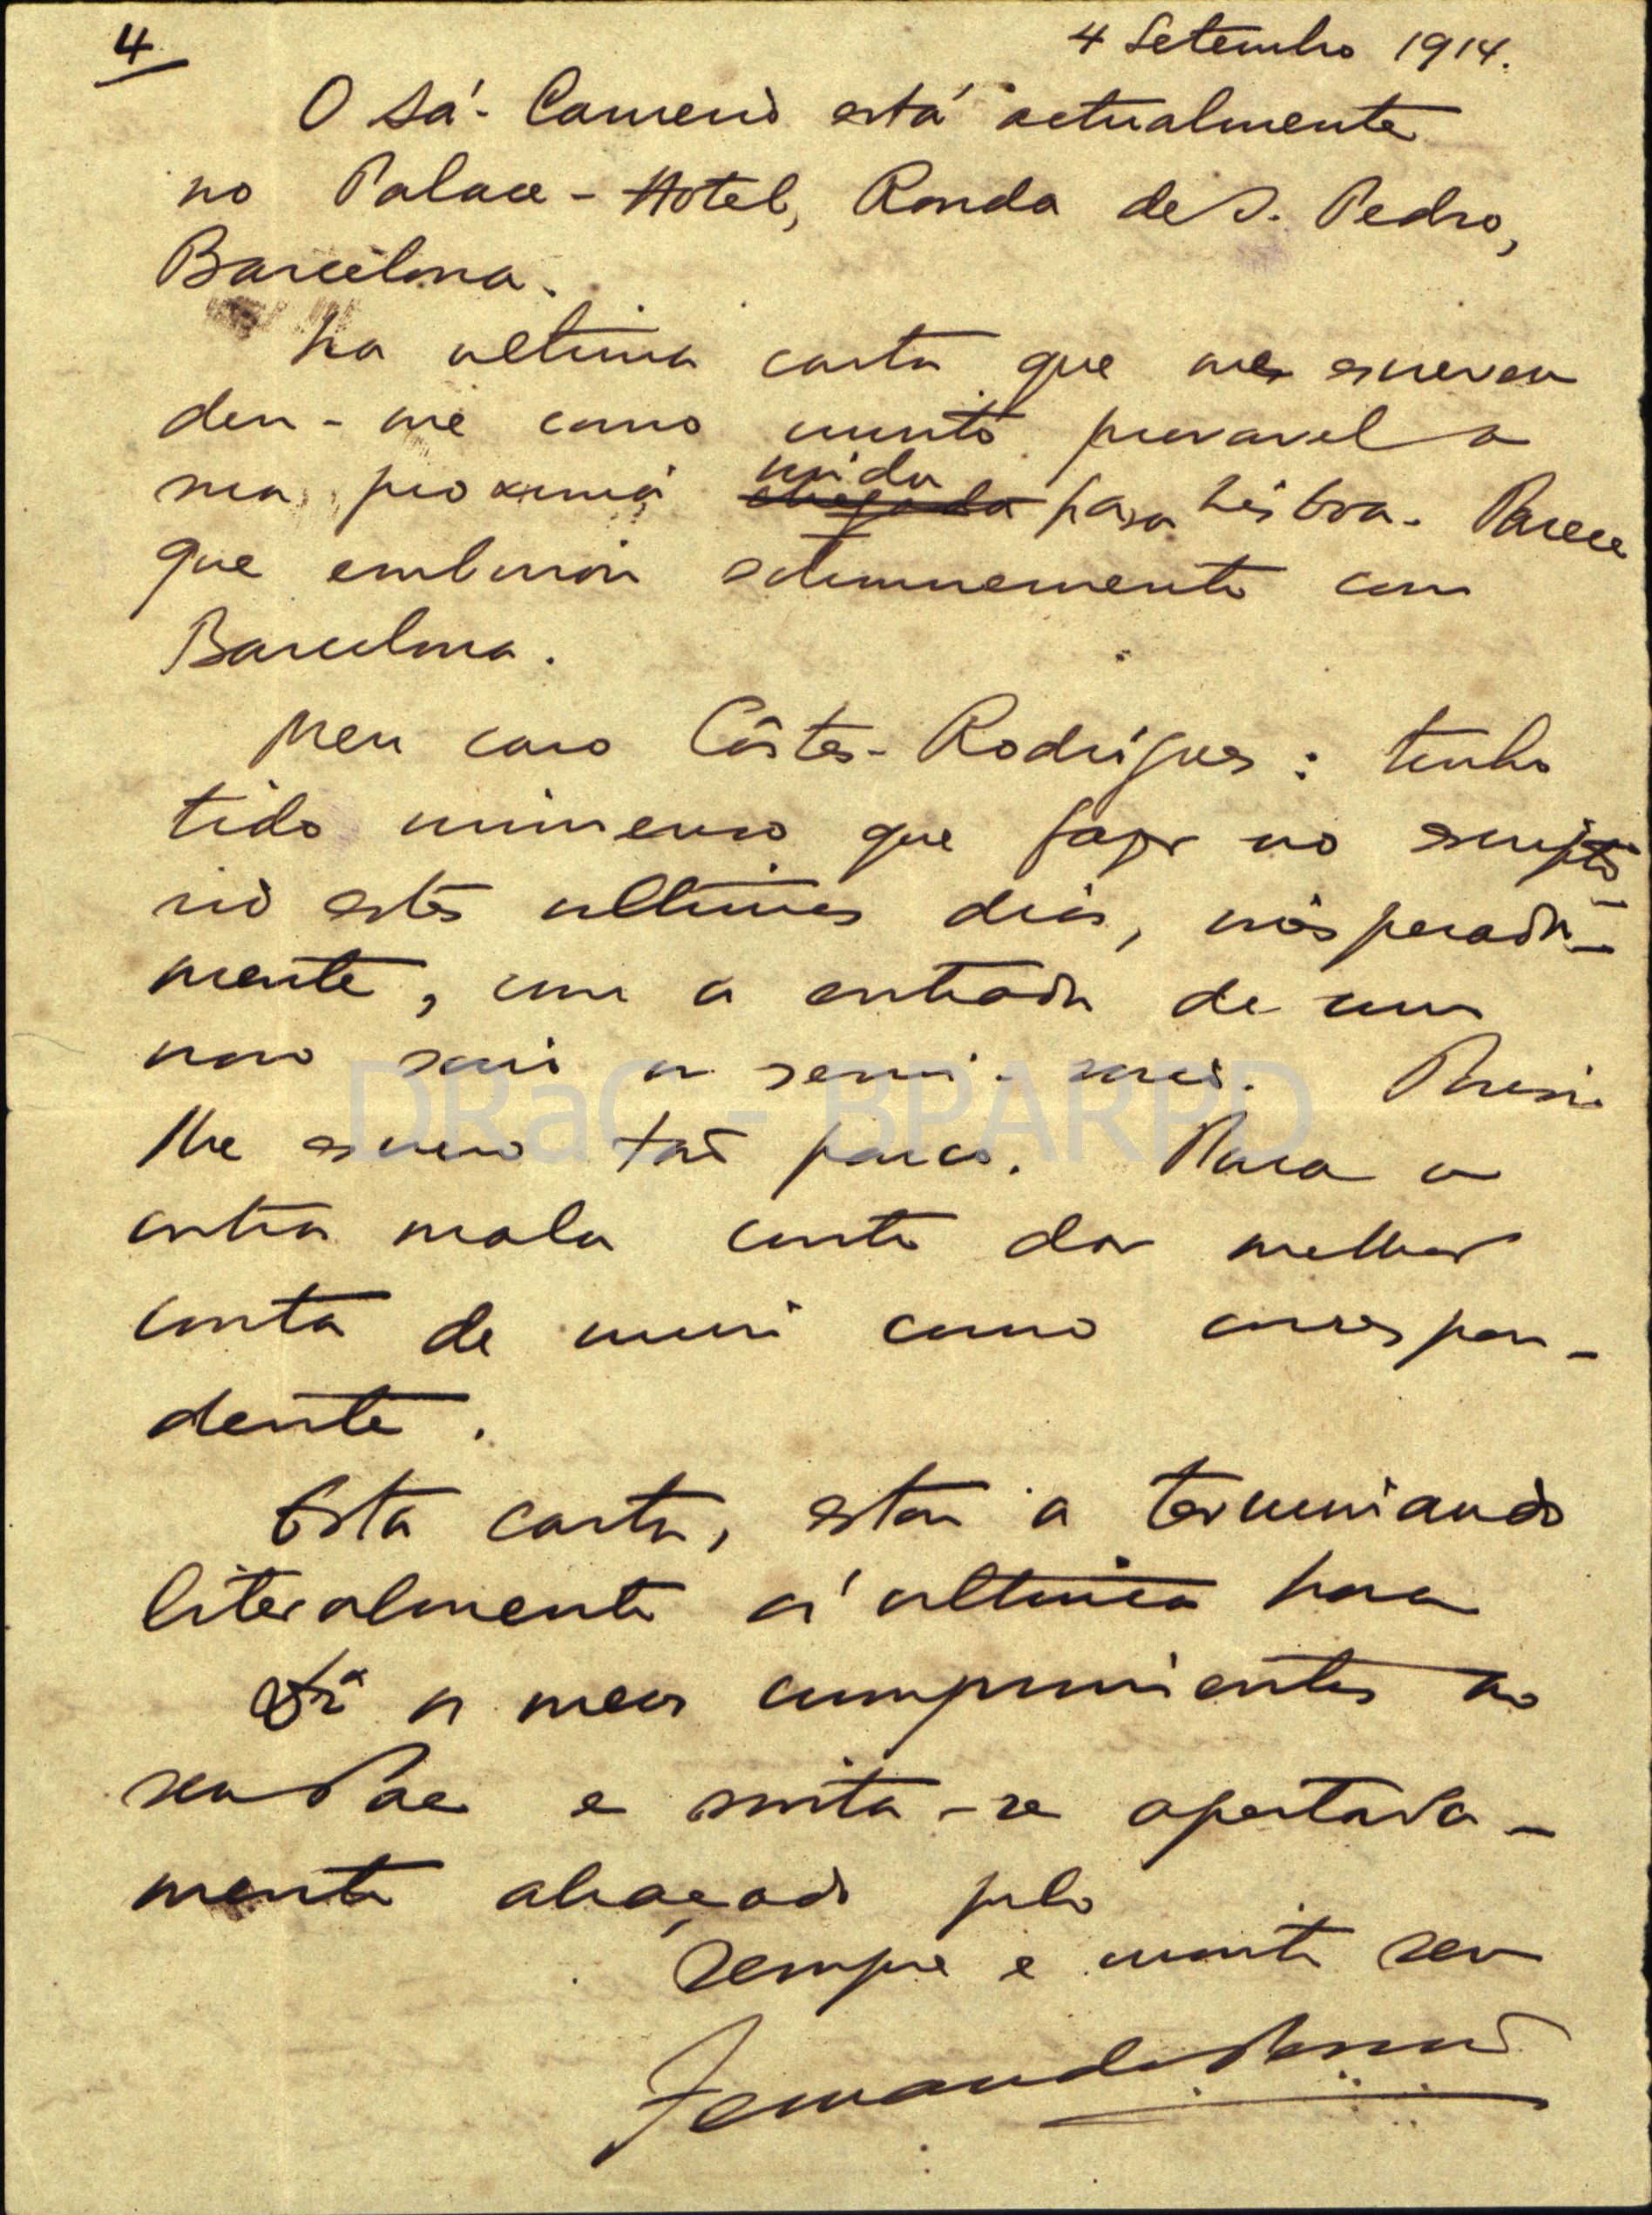 4
4 Setembro 1914.
O Sá-Carneiro está actualmente
no Palace-Hotel, Ronda de S. Pedro,
Barcelona.
Na ultima carta que me escreveu
deu-me como muito provavel a
sua proxima chegada vinda para Lisboa. Parece
que embirrou solemnemente com
Barcelona.
Meu caro Côrtes-Rodrigues: tenho
tido immenso que fazer no escripto-
rio estes ultimos dias, inesperada-
mente, com a entrada de um
novo socio ou semi-socio. Por isso
lhe escrevo tão pouco. Para a
outra mala conto dar melhor
conta de mim como correspon-
dente.
Esta carta, estou a terminando
literalmente á ultima hora
Dê os meus cumprimentos ao
seu Pae e sinta-se apertada-
mente abraçado pelo
sempre e muito seu
Fernando Pessoa
DRaC - BPARPD